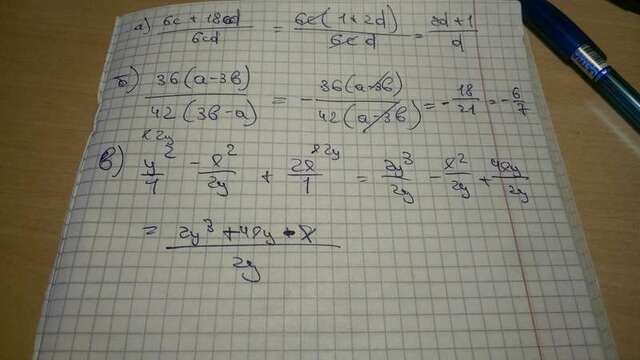 а) (6c + 18cd)/(6cd) = (6c(1+2d))/(6cd) = (2d+1)/d
б) (36(a-3b))/(42(3b-a)) = -(36(a-3b))/(42(a-3b)) = -18/21 = -6/7
в) y²/1 ˣ²ʸ - x²/(2y) + 2x/1 ˣ²ʸ = 2y³/(2y) - x²/(2y) + 4xy/(2y)
= (2y³ + 4xy - x)/(2y)